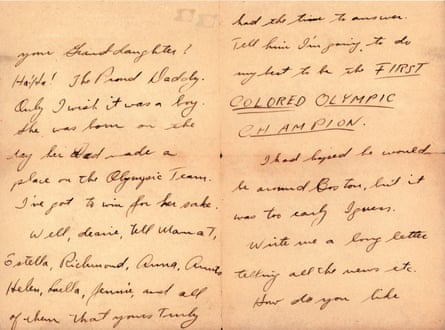 your Granddaughter?
Ha! Ha! The Proud Daddy.
Only I wish it was a boy.
She was born on the
day her dad made a
place on the Olympic Team.
I've got to win for her sake.
Well, dearie, tell Mama T,
Estella, Richmond, Anna,
Helen, Luella, Jennie, and all
of them that yours truly
had the time to answer.
Tell him I'm going to do
my best to be the FIRST
COLORED OLYMPIC
CHAMPION.
I had hoped he would
be around Boston, but it
was too early I guess.
Write me a long letter
telling all the news etc.
How do you like